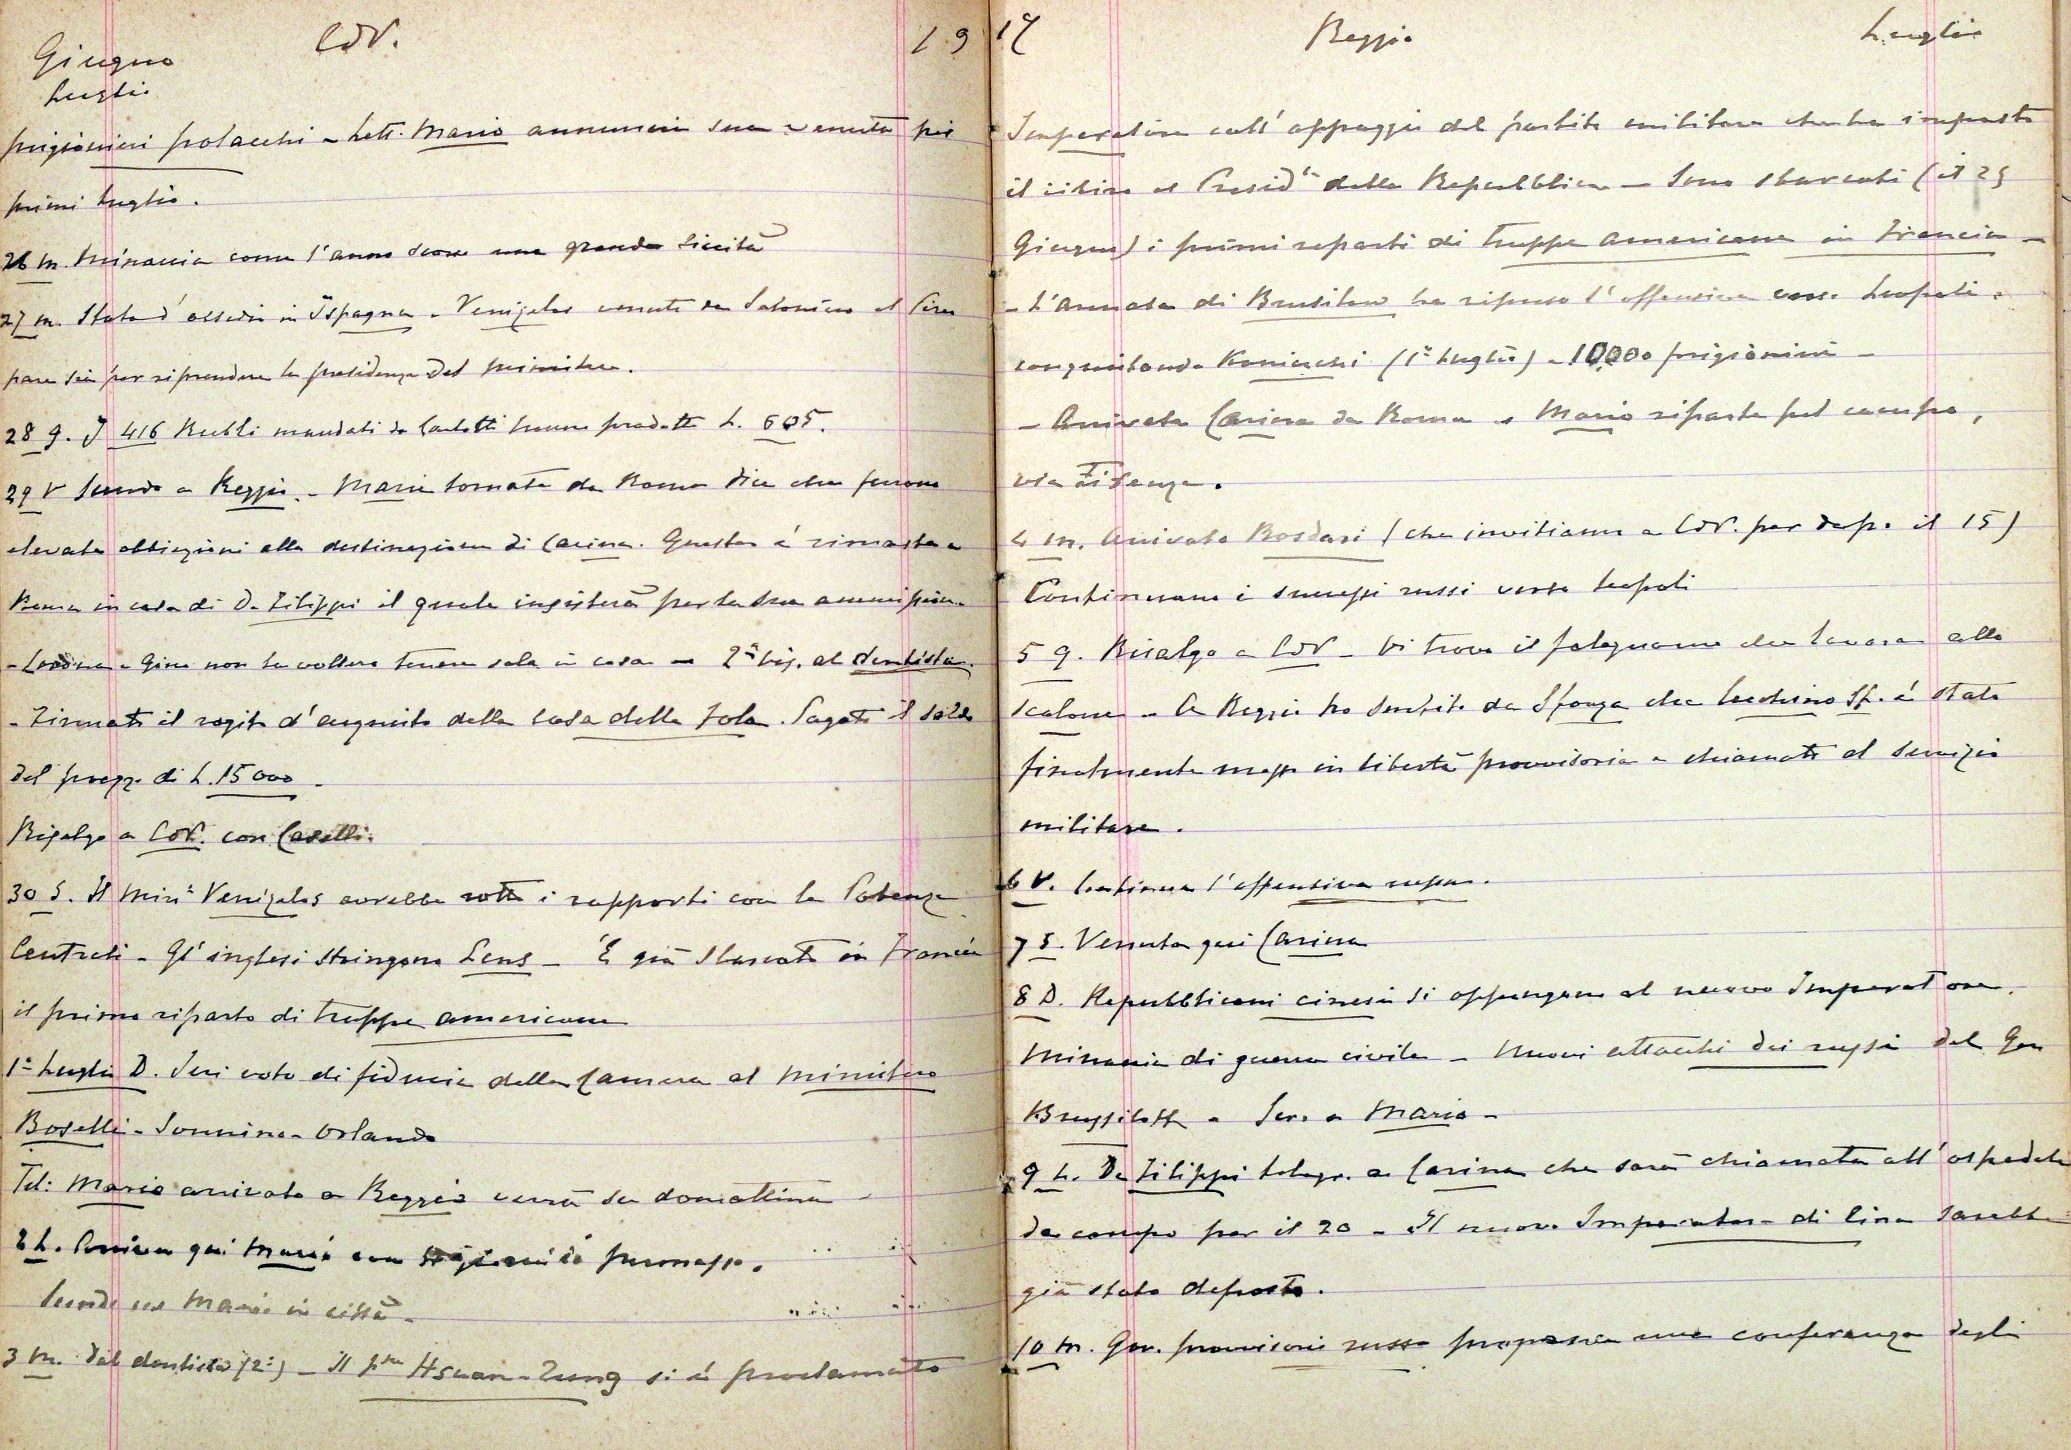 Giugno CdV. 19
Luglio
prigionieri polacchi - Lett. Mario annuncia sua venuta pei
primi Luglio.
26 M. Minaccia come l'anno scorso una grande siccità
27 m. Stato d'assedio in Ispagna - Venizelos venuto da Salonicco al Pireo
pare sia per riprendere la presidenza del ministero.
28 g. I 416 Rubli mandati da hanno prodotto L. 605.
29 V Scendo a Reggio. - Mario tornato da Roma dice che furono
elevate obbiezioni alla destinazione di Carina. Questa è rimasta a
Roma in casa di De Filippi il quale insisterà per la sua ammissione
- Gino non la vollero tenere sola in casa - 2ª vis. al dentista.
- Firmato il rogito d'acquisto della casa della Fola. Pagato il saldo
del prezzo di L. 15000
Risalgo a CdV. con Caselli.
30 S. Il Minº Venizelos avrebbe rotto i rapporti con le Potenze
Centrali - Gl'inglesi stringono Lens - È già sbarcato in Francia
il primo riparto di truppe americane
1º Luglio D. Ieri voto di fiducia della Camera al Ministero
Boselli - Sonnino - Orlando
Tel: Mario arrivato a Reggio verrà su domattina
2 L. Arriva qui Mario con
Scendo con Mario in città.
3 M. Dal dentista (2ª) - Il pre Hsuan-Tung si è proclamato
17 Reggio Luglio
Imperatore coll'appoggio del partito militare che ha imposto
il ritiro al Presidte della Repubblica - Sono sbarcati (il 25
Giugno) i primi reparti di truppe americane in Francia -
- L'armata di Brusilow ha ripreso l'offensiva verso Leopoli -
conquistando Koniuchi (1º Luglio) - 10,000 prigionieri -
- Arrivata Carina da Roma e Mario riparte pel campo,
via Firenze.
4 M. Arrivato Bosdari (che invitiamo a CdV. per dopo il 15)
Continuano i successi russi verso Leopoli
5 g. Risalgo a CdV - Vi trovo il falegname che lavora allo
scalone - A Reggio ho sentito da Sforza che Cecchino Sf. è stato
finalmente messo in libertà provvisoria e chiamato al servizio
militare.
6 V. Continua l'offensiva russa.
7 S. Venuta qui Carina
8 D. Repubblicani cinesi si oppongono al nuovo Imperatore.
Minaccia di guerra civile - Nuovi attacchi dei russi del Gen
Brussiloff - Scr. a Mario -
9 L. De Filippi telegr. a Carina che sarà chiamata all'ospedale
da campo per il 20 - Il nuovo Imperatore di Cina sarebbe
già stato deposto.
10 M. Gov. provvisorio russo propone una conferenza degli